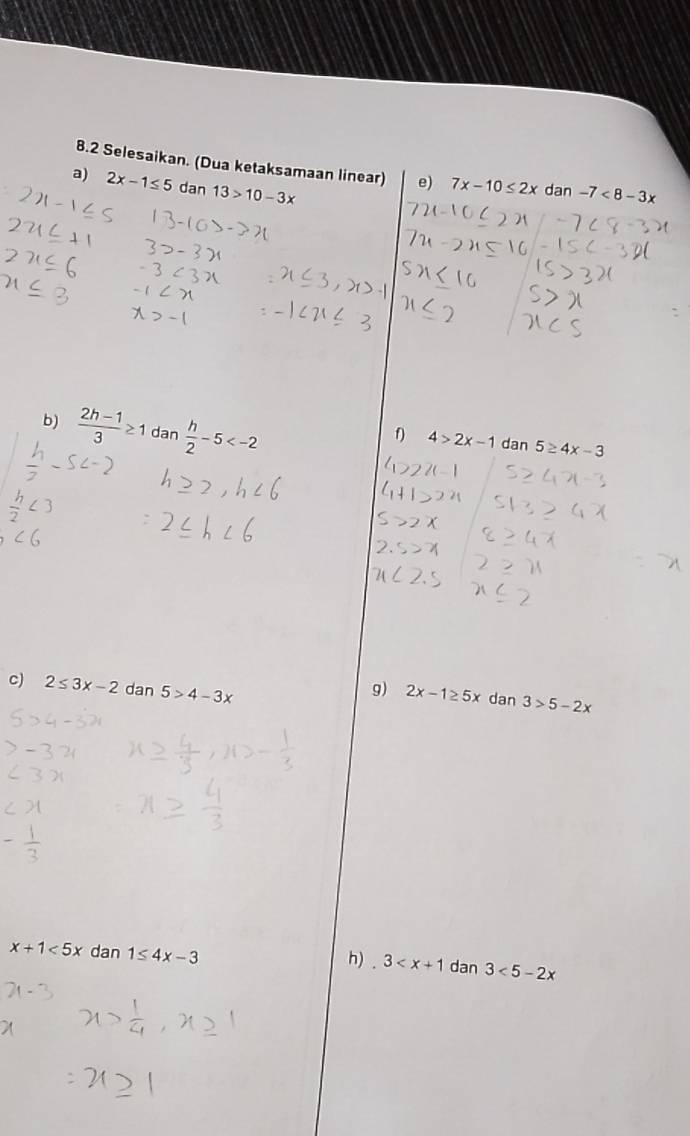 8.2 Selesaikan. (Dua ketaksamaan linear)
a) 2x − 1 ≤ 5 dan 13 > 10 − 3x
2x - 1 ≤ 5
2x ≤ +1
2x ≤ 6
x ≤ 3
13 - 10 > - 3x
3 > - 3x
-3 < 3x
-1 < x
x > -1
: x ≤ 3, x > -1
: -1 < x ≤ 3
e) 7x − 10 ≤ 2x dan −7 < 8 − 3x
7x - 10 ≤ 2x
7x - 2x ≤ 10
5x ≤ 10
x ≤ 2
-7 < 8 - 3x
-15 < -3x
15 > 3x
5 > x
x < 5
b) (2h − 1)/3 ≥ 1 dan h/2 − 5 < −2
h/2 - 5 < -2
h/2 < 3
< 6
h ≥ 2, h < 6
: 2 ≤ h < 6
f) 4 > 2x − 1 dan 5 ≥ 4x − 3
4 > 2x - 1
4 + 1 > 2x
5 > 2x
2.5 > x
x < 2.5
5 ≥ 4x - 3
5 + 3 ≥ 4x
8 ≥ 4x
2 ≥ x
x ≤ 2
= x
c) 2 ≤ 3x − 2 dan 5 > 4 − 3x
5 > 4 - 3x
> -3x
< 3x
< x
- 1/3
x ≥ 4/3, x > - 1/3
: x ≥ 4/3
g) 2x − 1 ≥ 5x dan 3 > 5 − 2x
x + 1 < 5x dan 1 ≤ 4x − 3
x - 3
x
x > 1/4, x ≥ 1
: x ≥ 1
h) . 3 < x + 1 dan 3 < 5 − 2x